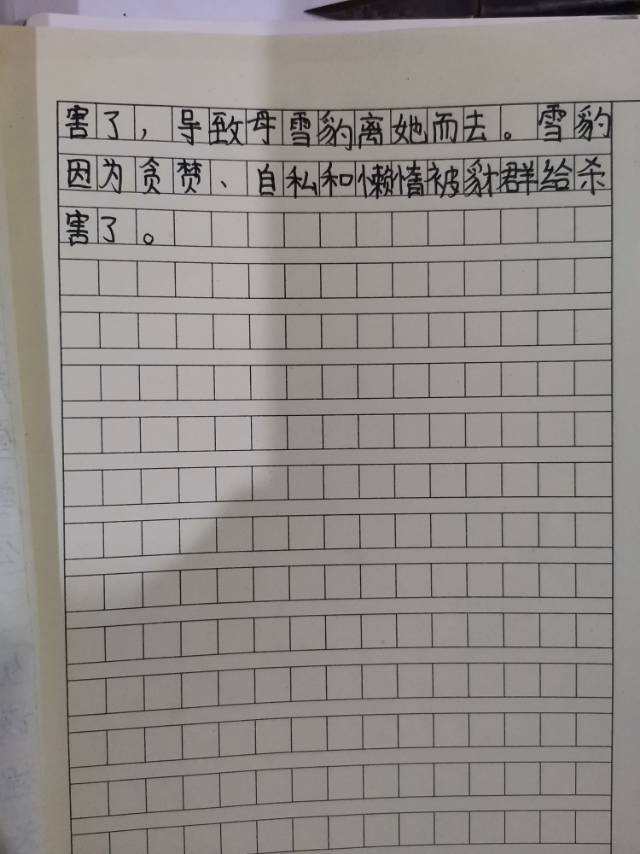 害了，导致母雪豹离她而去。雪豹
因为贪婪、自私和懒惰被豺群给杀
害了。